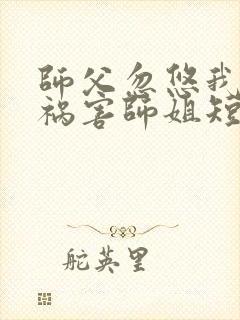 師父忽悠我
祸害師姐短
舵英里